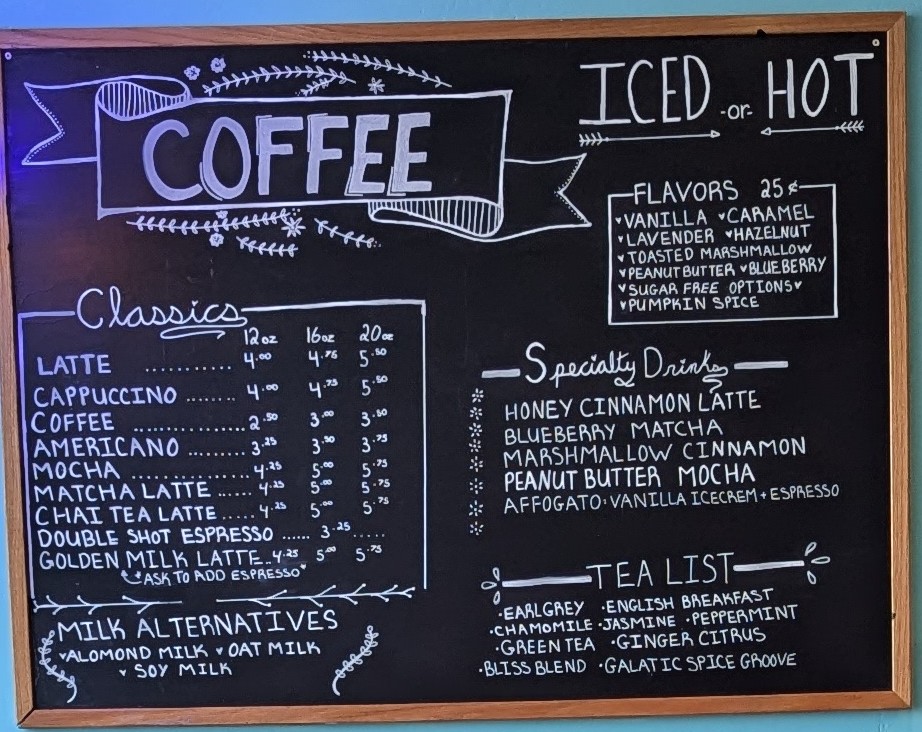 COFFEE
ICED -or- HOT
FLAVORS 25¢
VANILLA CARAMEL
LAVENDER HAZELNUT
TOASTED MARSHMALLOW
PEANUT BUTTER BLUEBERRY
SUGAR FREE OPTIONS
PUMPKIN SPICE
Classics
12oz 16oz 20oz
LATTE ........... 4.00 4.75 5.50
CAPPUCCINO ........ 4.00 4.75 5.50
COFFEE .............. 2.50 3.00 3.50
AMERICANO ......... 3.25 3.50 3.75
MOCHA ................ 4.25 5.00 5.75
MATCHA LATTE ...... 4.25 5.00 5.75
CHAI TEA LATTE ..... 4.25 5.00 5.75
DOUBLE SHOT ESPRESSO ...... 3.25 .....
GOLDEN MILK LATTE .. 4.25 5.00 5.75
ASK TO ADD ESPRESSO
MILK ALTERNATIVES
ALOMOND MILK OAT MILK
SOY MILK
Specialty Drinks
HONEY CINNAMON LATTE
BLUEBERRY MATCHA
MARSHMALLOW CINNAMON
PEANUT BUTTER MOCHA
AFFOGATO: VANILLA ICECREM + ESPRESSO
TEA LIST
·EARL GREY ·ENGLISH BREAKFAST
·CHAMOMILE ·JASMINE ·PEPPERMINT
·GREEN TEA ·GINGER CITRUS
·BLISS BLEND ·GALATIC SPICE GROOVE